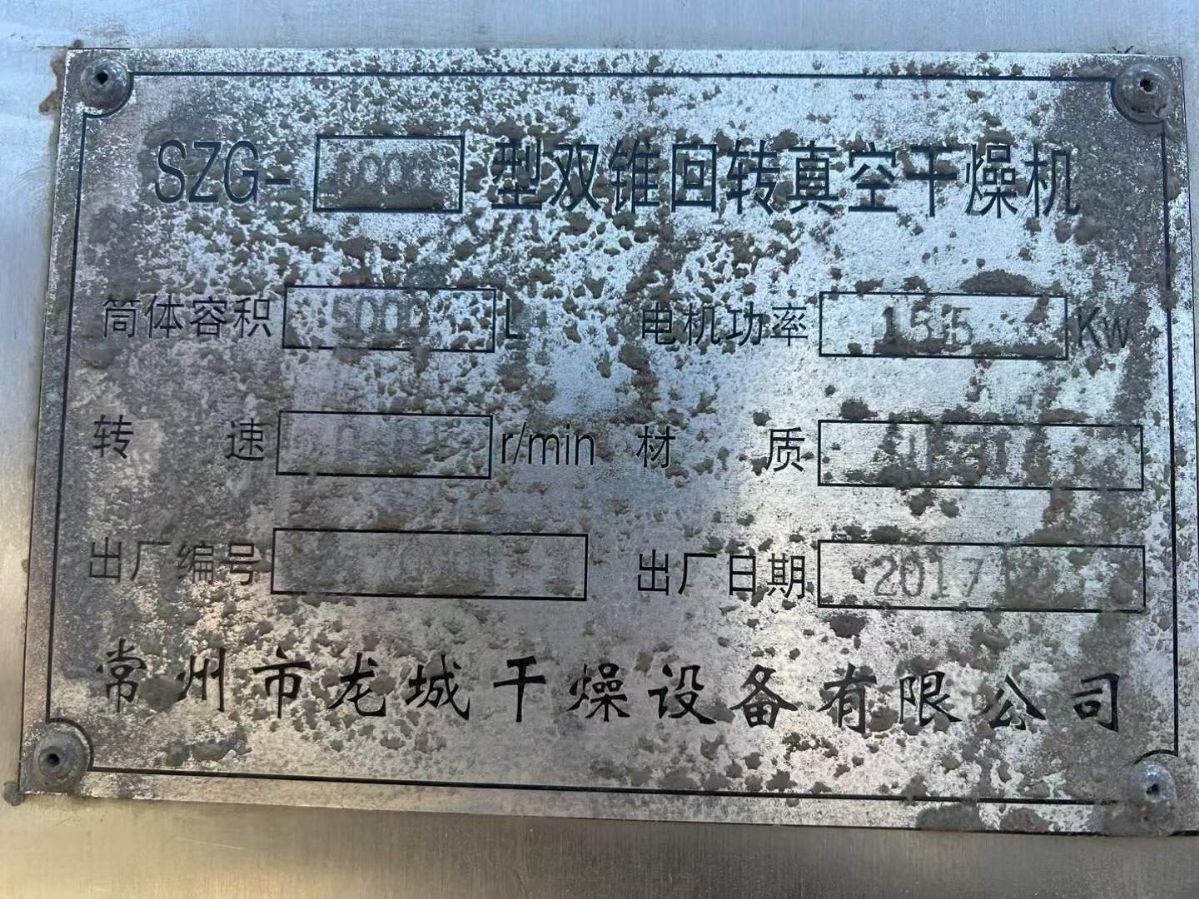 SZG- 型双锥回转真空干燥机
筒体容积 5000 L 电机功率 15.5 Kw
转速 r/min 材质
出厂编号 出厂日期 2017
常州市龙城干燥设备有限公司